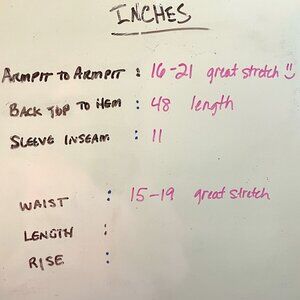 INCHES
ARMPIT TO ARMPIT : 16-21 great stretch ☺
BACK TOP TO HEM : 48 length
SLEEVE INSEAM : 11
WAIST : 15-19 great stretch
LENGTH :
RISE :